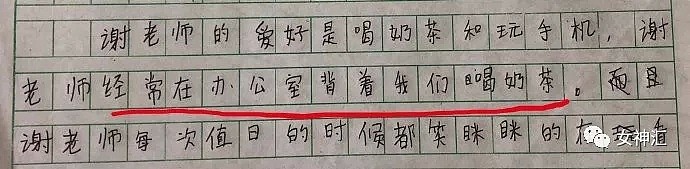 谢老师的爱好是喝奶茶和玩手机,谢
老师经常在办公室背着我们喝奶茶。而且
谢老师每次值日的时候都笑眯眯的在玩手
女神进